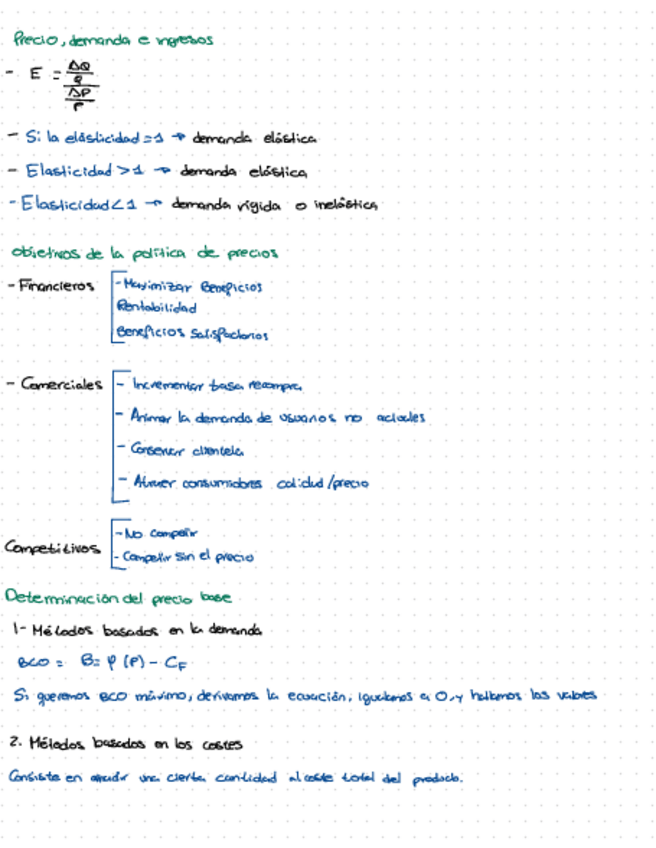 Precio, demanda e ingresos
- E = ΔQ/Q / ΔP/P
- Si la elasticidad = 1 → demanda elástica
- Elasticidad > 1 → demanda elástica
- Elasticidad < 1 → demanda rígida o inelástica
Objetivos de la política de precios
- Financieros
- Maximizar Beneficios
Rentabilidad
Beneficios Satisfactorios
- Comerciales
- Incrementar tasa recompra
- Animar la demanda de usuarios no actuales
- Conservar clientela
- Atraer consumidores calidad/precio
Competitivos
- No competir
- Competir sin el precio
Determinación del precio base
1- Métodos basados en la demanda
BCO = B = φ (P) - CF
Si queremos BCO máximo, derivamos la ecuación, igualamos a 0, y hallamos los valores
2. Métodos basados en los costes
Consiste en añadir una cierta cantidad al coste total del producto.